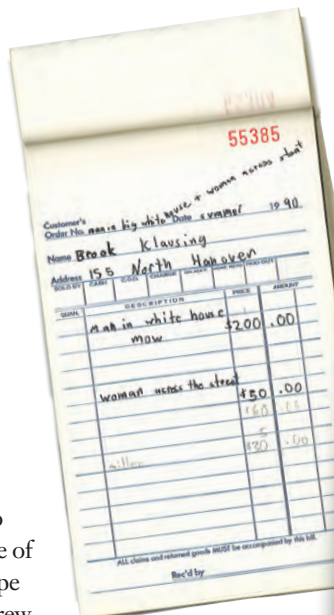 55385
Customer's
Order No. man in big white house + woman across street
Date summer 1990
Name Brook Klausing
Address 155 North Hanover
SOLD BY CASH C.O.D. CHARGE PAID OUT
QUAN. DESCRIPTION PRICE AMOUNT
Man in white house $200 .00
mow
woman across the street $50 .00
$30 .00
ALL claims and returned goods MUST be accompanied by this bill.
Rec'd by
e of
pe
rew